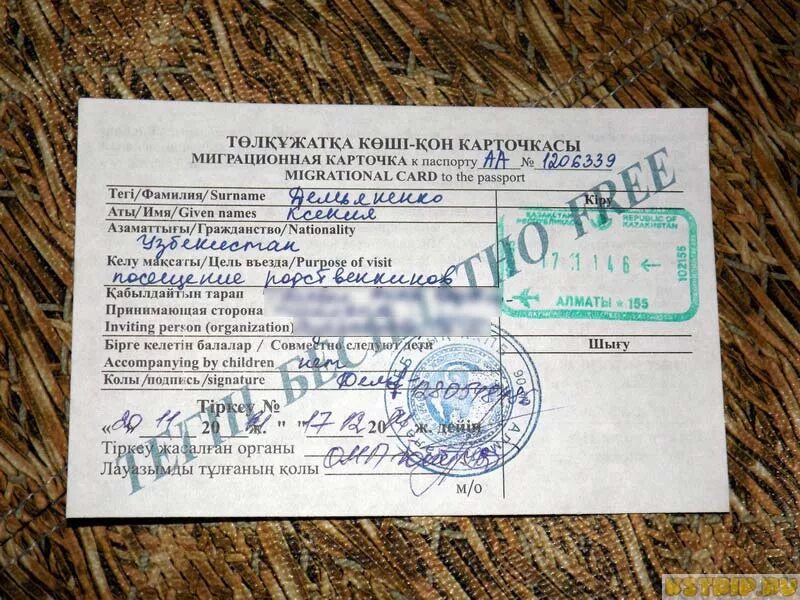 ТӨЛҚҰЖАТҚА КӨШІ-ҚОН КАРТОЧКАСЫ
МИГРАЦИОННАЯ КАРТОЧКА к паспорту АА № 1206339
MIGRATIONAL CARD to the passport
Тегі/Фамилия/Surname Демьяненко
Аты/Имя/Given names Ксения
Азаматтығы/Гражданство/Nationality
Узбекистан
Келу мақсаты/Цель въезда/Purpose of visit
посещение родственников
Қабылдайтын тарап
Принимающая сторона
Inviting person (organization)
Бірге келетін балалар / Совместно следуют дети
Accompanying by children нет
Қолы /подпись/signature
Кіру
ҚАЗАҚСТАН РЕСПУБЛИКАСЫ REPUBLIC OF KAZAKHSTAN
102155
АЛМАТЫ * 155
Шығу
ТЕГІН БЕСПЛАТНО FREE
Тіркеу №
"20" 11 20 ж. "17" 12 20 ж. дейін
Тіркеу жасалған органы
Лауазымды тұлғаның қолы
м/о
KSTRIP.RU